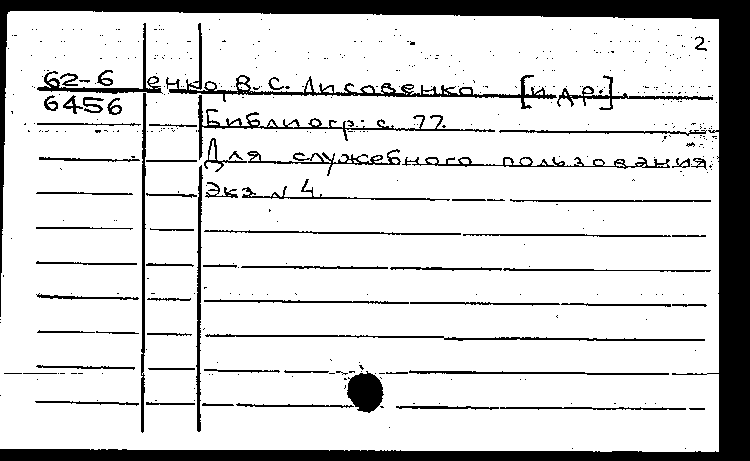 2
62-6 енко, В.С. Лисовенко [и др.].
6456
Библиогр: с. 77.
Для служебного пользования.
Экз N 4.